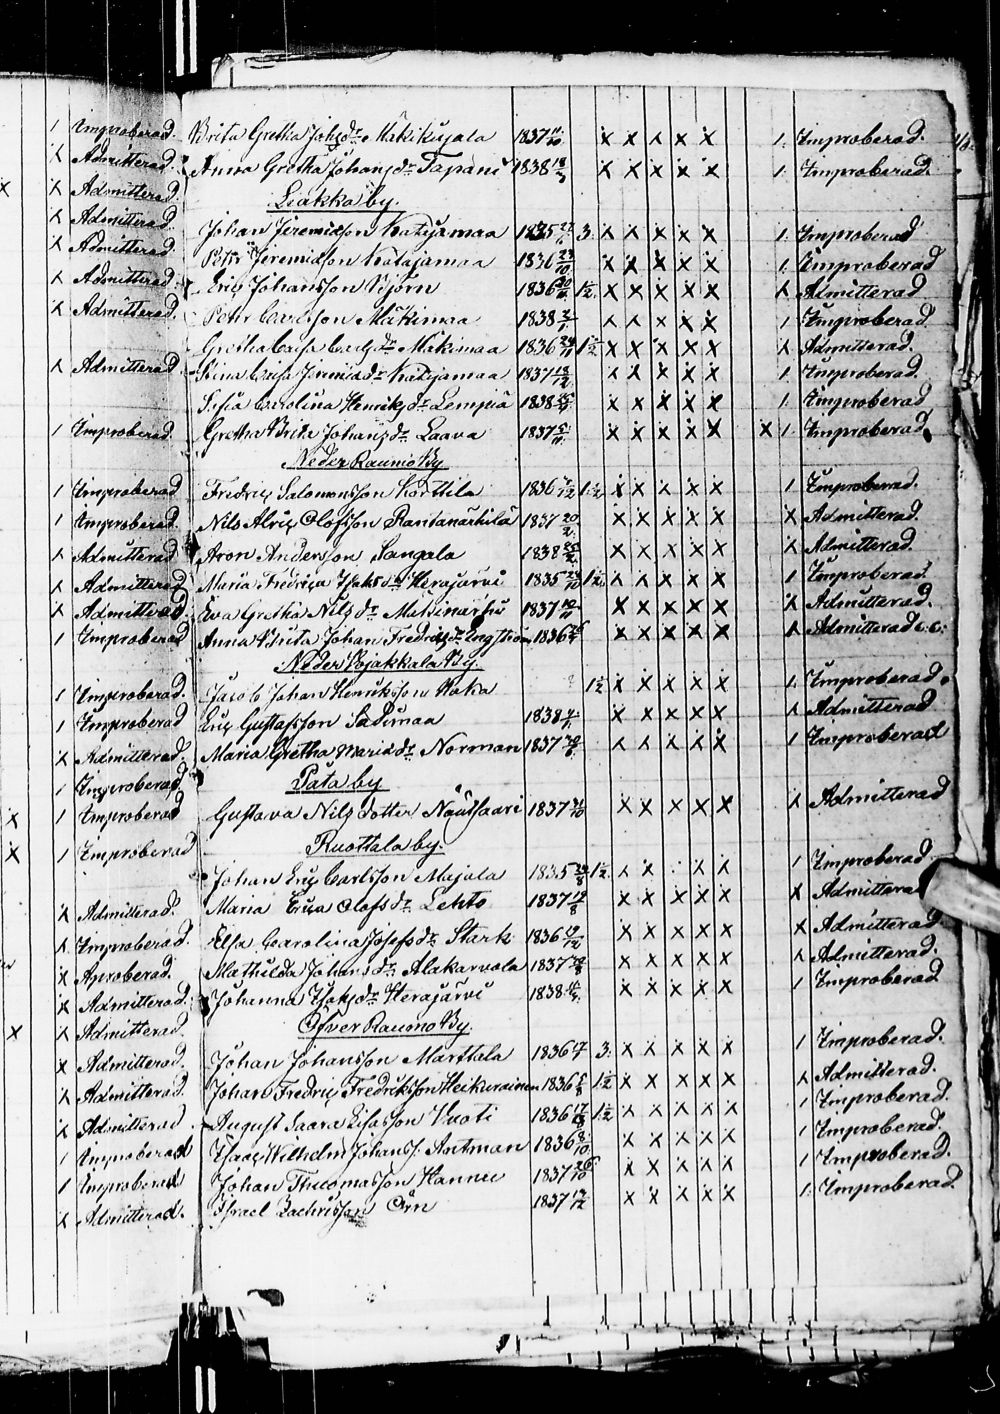 1 Improberad.
x Admitterad.
x x Admitterad.
x Admitterad.
x Admitterad.
x Admitterad.
x Admitterad.
x Admitterad
1 Improberad.
1 Improberad
1 Improberad.
x Admitterad.
x Admitterad
x Admitterad
1 Improberad
1 Improberad.
1 Improberad
x Admitterad.
1 Improberad
x 1 Improberad
x 1 Improberad
x Admitterad.
x Improberad.
x Aproberad.
x Admitterad.
x x Admitterad.
x Admitterad.
x Admitterad.
x Admitterad
1 Improberad
1 Improberad
x Admitterad.
Brita Gretha Johsdr Mäkikujala 1837 x x x x x 1 Improberad.
Anna Gretha Johansdr Tapani 1838 x x x x x 1 Improberad.
Liakka by.
Johan Jeremidson Katajamaa 1835 3 x x x x x 1 Improberad
Petter Jeremidson Katajamaa 1836 x x x x x 1 Improberad
Eric Johansson Björn 1836 1½ x x x x x x Admitterad
Petter Carlsson Mäkimaa 1838 x x x x x 1 Improberad.
Gretha Caisa Carlsdr Mäkimaa 1836 1½ x x x x x x Admitterad.
Stina Caisa Jeremiadr Katajamaa 1837 x x x x x 1 Improberad.
Sofia Carolina Henriksdr Lempiä 1838 x x x x x 1 Improberad
Gretha Brita Johansdr Laava 1837 x x x x x x 1 Improberad
Neder Raumo By
Fredric Salomonsson Korttila 1836 1½ x x x x x 1 Improberad.
Nils Alric Olofsson Rantanärkilä 1837 20/2 x x x x x x Admitterad.
Aron Andersson Sangala 1838 x x x x x x Admitterad.
Maria Fredrica Isaksdr Herajärvi 1835 1½ x x x x x 1 Improberad.
Eva Gretha Nilsdr Mikinärhi 1837 x x x x x x Admitterad.
Anna Brita Johan Fredricsdr Engström 1836 x x x x x x Admitterad
Neder Wojakkala By.
Jacob Johan Henriksson Koka 1½ x x x x x 1 Improberad.
Eric Gustafsson Sadimaa 1838 x x x x x x Admitterad
Maria Gretha Mariadr Norman 1837 x x x x x 1 Improberad
Päta by
Gustava Nils dotter Näätsaari 1837 x x x x x x Admitterad
Ruottala by.
Johan Eric Carlsson Majala 1835 1½ x x x x 1 Improberad
Maria Erica Olofsdr Lehto 1837 x x x x x x Admitterad
Elsa Carolina Josefsdr Stark 1836 x x x x x x Admitterad.
Mathilda Johansdr Alakarvola 1837 x x x x x x Admitterad.
Johanna Isaksdr Herajärvi 1838 x x x x x 1 Improberad
Öfver Raumo By.
Johan Johansson Marttala 1836 3 x x x x x 1 Improberad.
Johan Fredric Fredriksson Heikurainen 1836 1½ x x x x x x Admitterad.
August Saara Lisasson Vuoti 1836 1½ x x x x x 1 Improberad.
Isaac Wilhelm Johans S. Antman 1836 8/10 x x x x x 1 Improberad.
Johan Thuomasson Hannu 1837 26/10 x x x x x 1 Improberad.
Israel Zachrisson Örn 1837 x x x x x 1 Improberad.